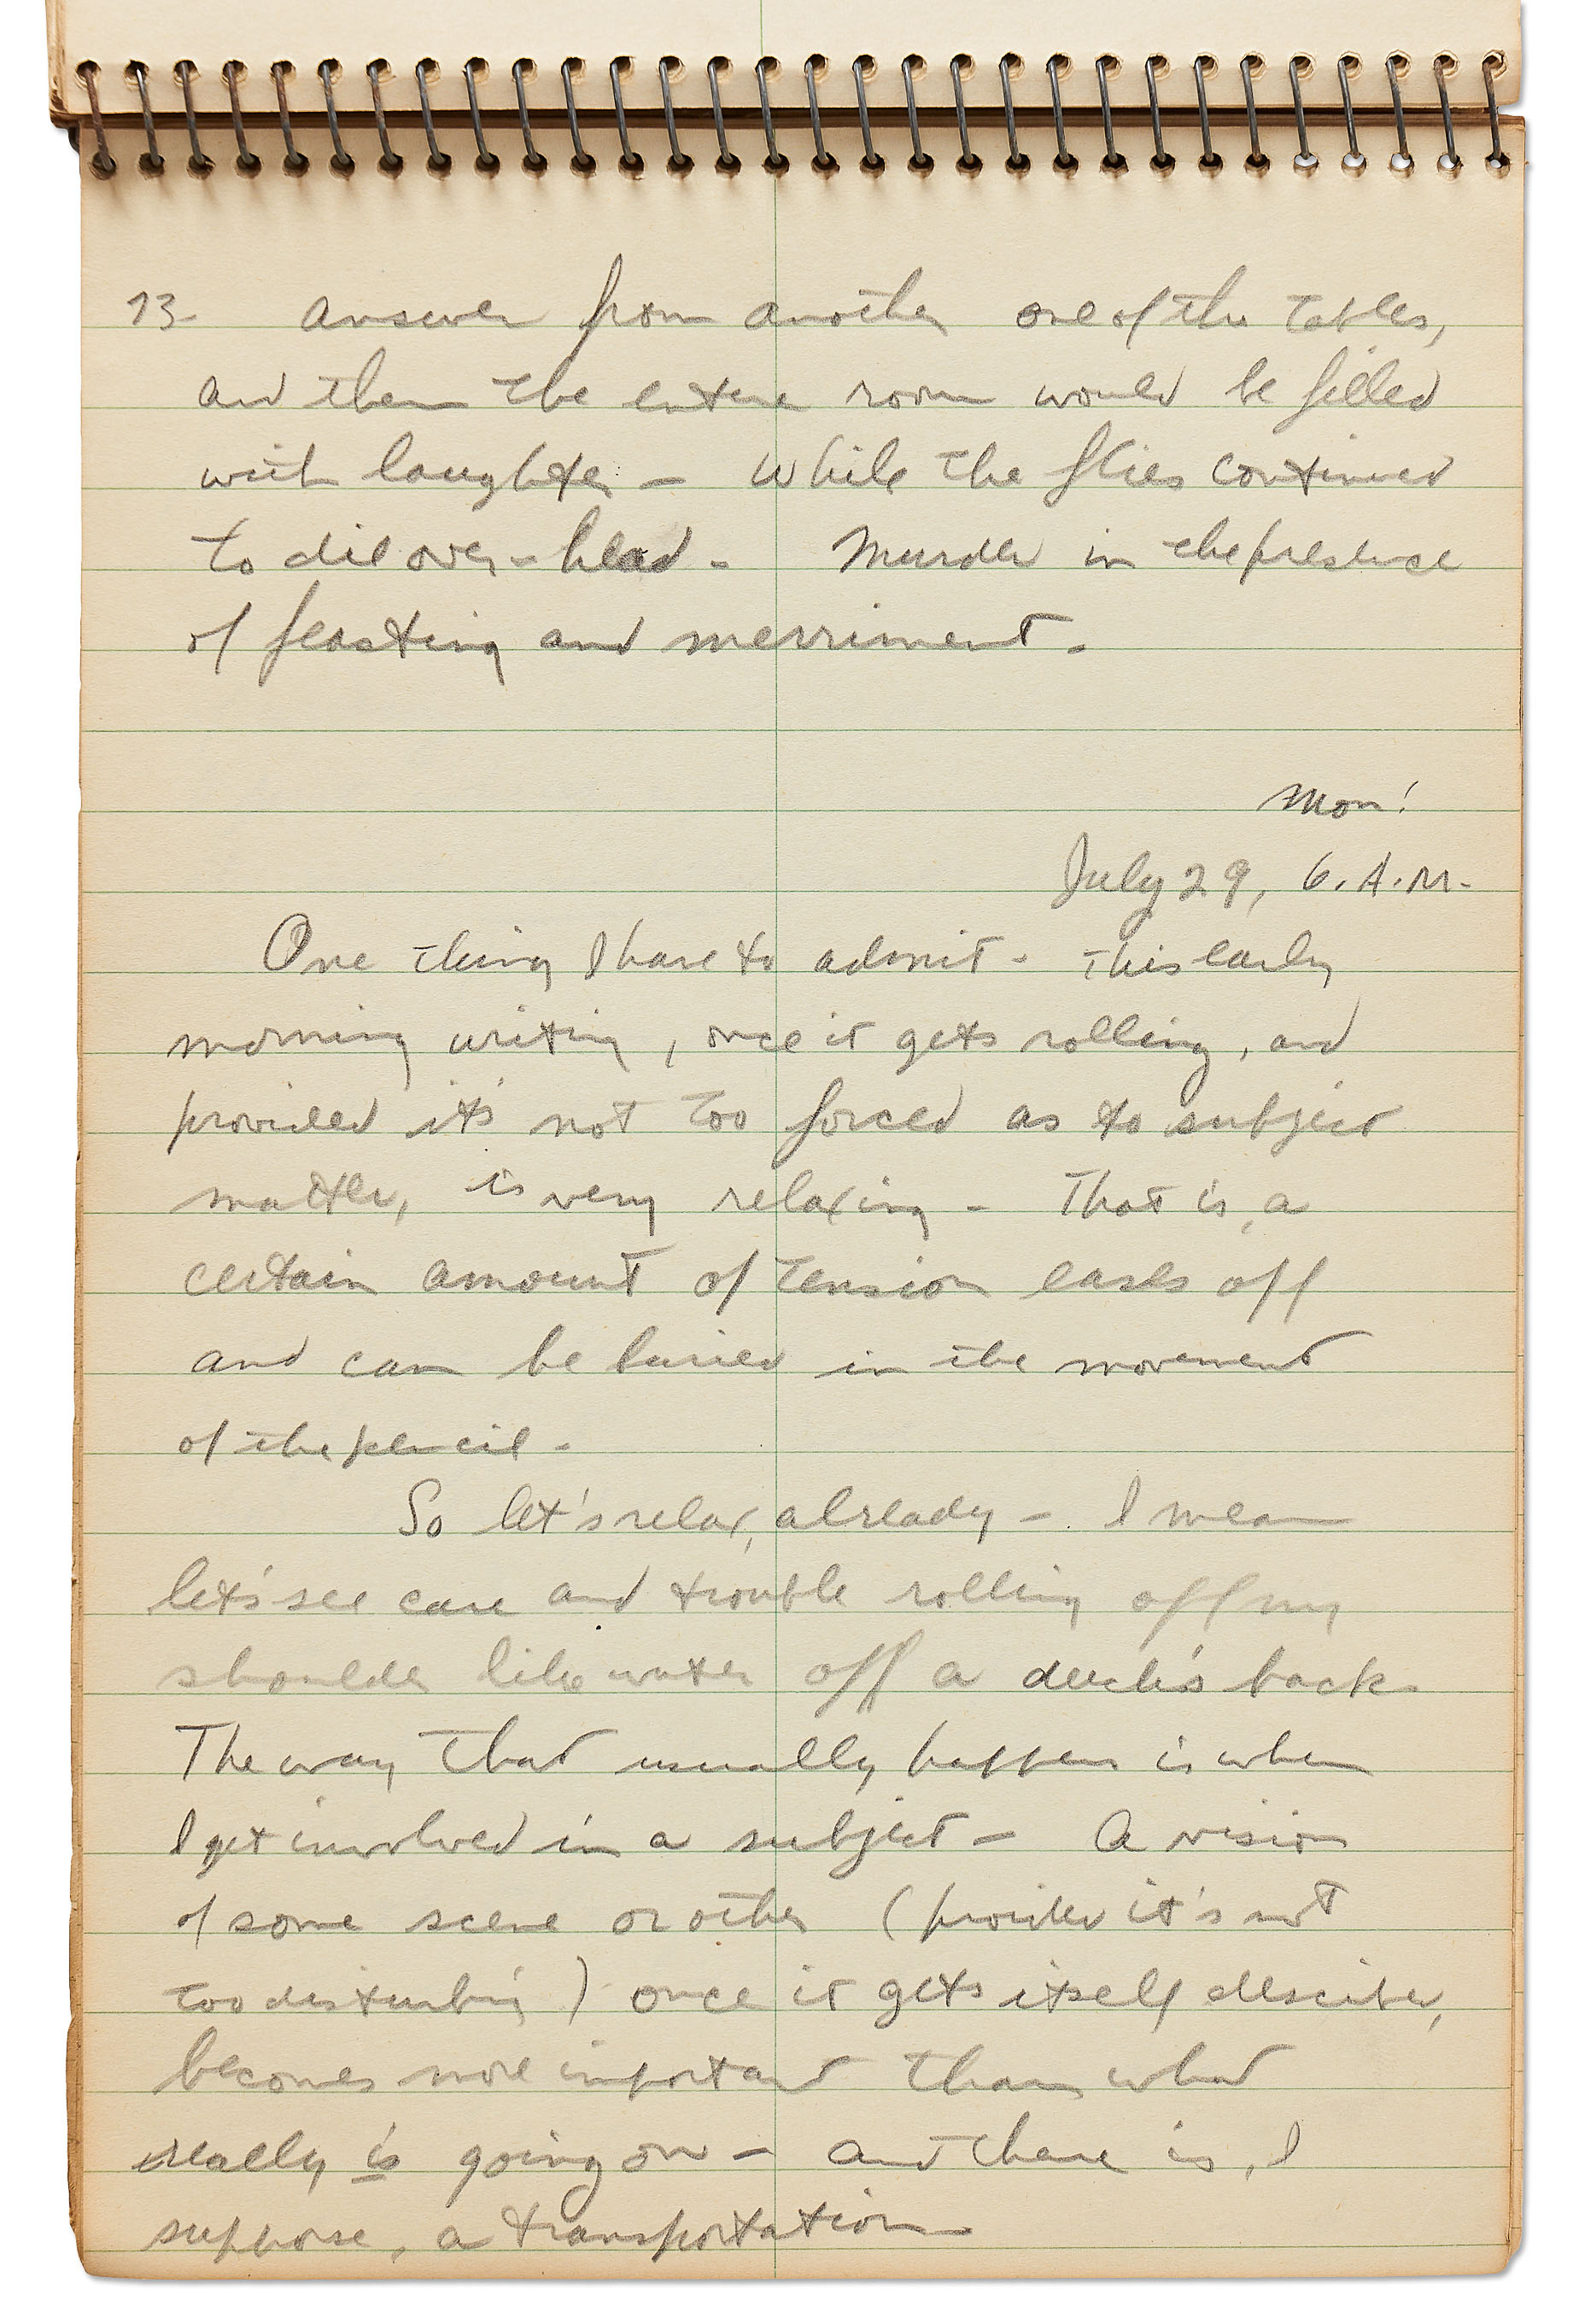 13- Answer from another one of the tables,
and then the entire room would be filled
with laughter - While the flies continued
to die over-head - Murder in the presence
of feasting and merriment.
Mon!
July 29, 6. A.M.
One thing I have to admit - This early
morning writing, once it gets rolling, and
provided it's not too forced as to subject
matter, is very relaxing - That is, a
certain amount of tension eases off
and can be buried in the movement
of the pencil -
So let's relax, already - I mean
let's see care and trouble rolling off my
shoulder like water off a duck's back.
The way that usually happens is when
I get involved in a subject - A vision
of some scene or other (provided it's not
too disturbing) once it gets itself described,
becomes more important than what
really is going on - and there is, I
suppose, a transportation